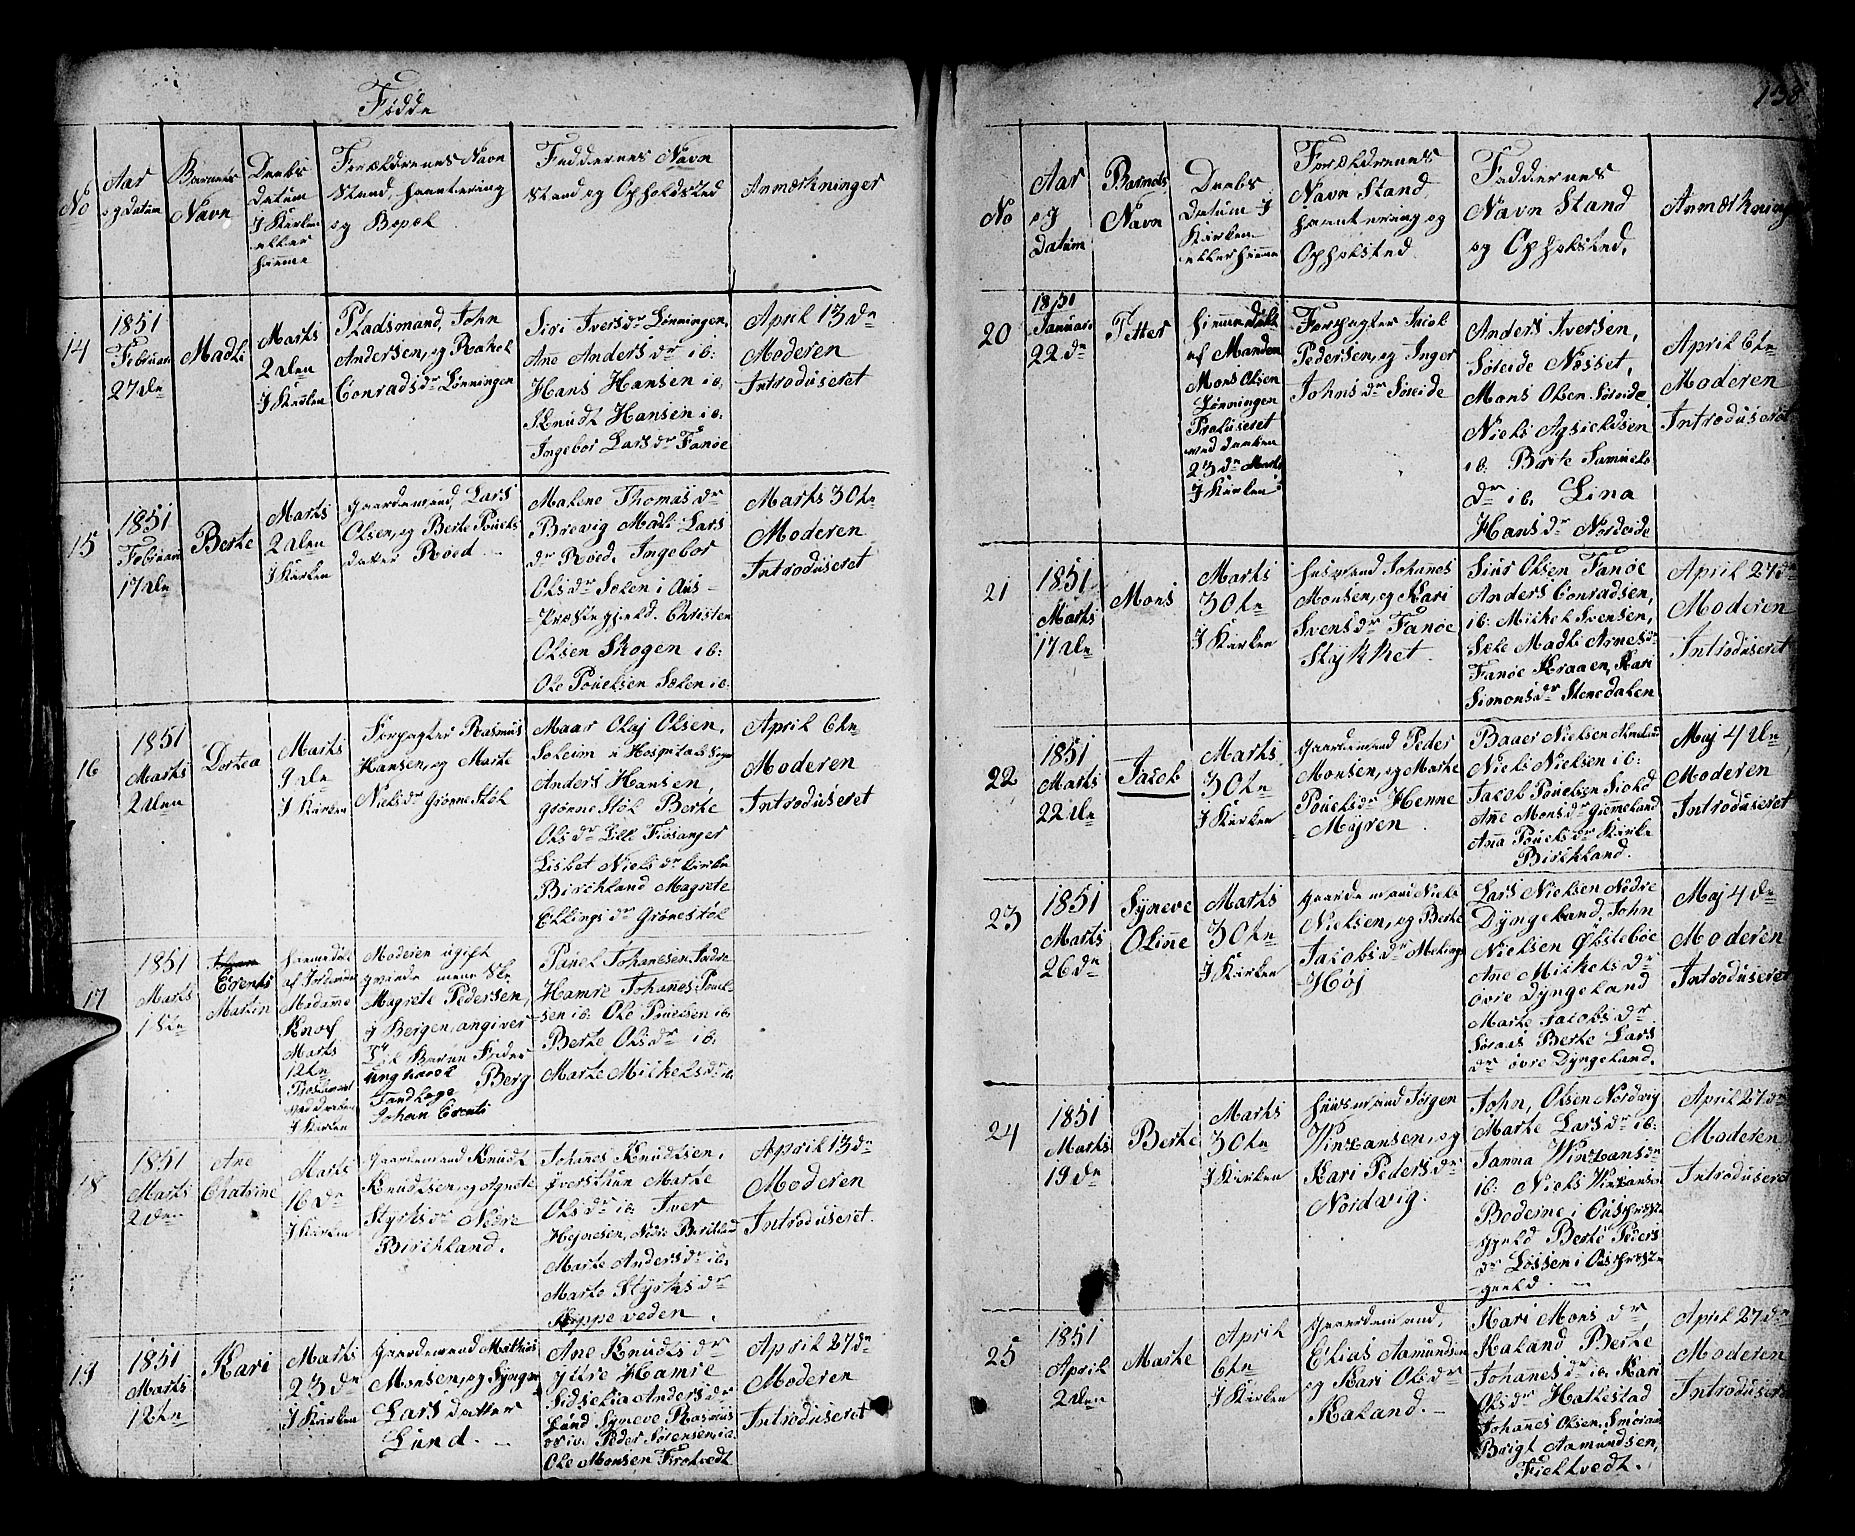 Fødde
No
Aar
og datum
Barnets
Navn
Daabs
datum
I Kirken
eller
hiemme
Forældrenes Navn
Stand, haantering
og Bopæl
Faddernes Navn
Stand og Opholdsted
Anmærkninger
14
1851
Februari
27de
Madli
Marts
2den
I Kirken
Pladsmand, John
Andersen, og Rakel
Conradsdr Lønningen
Siri Iversdr Lønningen,
Ane Andersdr ib:
Hans Hansen ib.
Knudt Hansen ib.
Ingebor Larsdr Fanøe
April 13de
Moderen
Introduseret
15
1851
Februari
17den
Berte
Marts
2den
I Kirken
gaardemand, Lars
Olsen, og Berte Pouels
datter Røed
Malene Thomasdr
Brevig Madli Lars
dr Røed. Ingebor
Olsdr Solen i Aus-
Præstegjeld. Christen
Olsen Skogen ib:
Ole Pouelsen Sælen ib:
Marts 30te
Moderen
Introduseret
16
1851
Marts
2den
Dortea
Marts
9de
I Kirken
Forpagter Rasmus
Hansen, og Marte
Nielsdr Grønne Støl
Maar Olaj Olsen,
Soleim u Hospitals Sogn
Anders Hansen,
grønne Støl Berte
Olsdr Lille Fiosanger
Lisbet Nielsdr Kirke
Birchland Magrete
Ellingsdr Grønestøl
April 6te
Moderen
Introduseret
17
1851
Marts
1ste
Erents
Martin
hiemmedøbt
af Jordemoder
Madamme
Knof
Marts
12te
med daaben
I Kirken
Moderen ugift
qvinde
Magrete Pedersen,
i Bergen, angiver
til Barne Fader
ung karl Berg
Johan Erents
Pouel Johanesen, Indre
Hamre Johanes Pouel-
sen ib: Ole Pouelsen ib:
Berte Olsdr ib.
Marte Mickelsdr ib
18
1851
Marts
2den
Ane
Chatrine
Marts
16de
I Kirken
Gaardemand Knudt
Knudtsen, og Agnete
Styrksdr Nedre
Birchland.
Johanes Knudtsen,
Øvrestuun Marte
Olsdr ib: Iver
Hejnesen, Nedre Birkland
Marte Andersdr ib.
Marte Styrksdr
Keppeveden.
April 13de
Moderen
Introduseret.
19
1851
Marts
12te
Kari
Marts
23de
I Kirken
Gaardemand Mathias
Monsen, og Synnev
Lars datter
Lund.
Ane Knudtsdr
ytre Hamre
Sidselia Andersdr
Lund Syneve Rasmus
dr ib. Peder Sørensen, ib.
Ole Monsen Firotvedt
April 27de
Moderen
Introduseret
138
No
Aar
og
Datum
Barnets
Navn
Daabs
Datum I
Kirken
eller hiemme
Forældrenes
Navn Stand,
haantering og
Opholsted
Faddernes
Navn Stand
og Opholsted.
Anmærkninge
20
1851
Januari
22de
Petter
hiemmedøbt
af Manden
Mons Olsen
Lønningen
Præsuseret
ved daaben
23de Marts
I Kirken
Forpagter Jacob
Pedersen, og Inger
Johnsdr Søreide
Anders Iversen,
Søreide Næsset,
Mons Olsen Søreide,
Niels Agsieldsen
ib. Brite Samuels
dr ib. Lina
Hansdr Nordeide
April 6te
Moderen
Introduseret
21
1851
Marts
17de
Mons
Marts
30te
I Kirken
husmand Johanes
Monsen, og Kari
Svensdr Fanøe
Stykket.
Siur Olsen Fanøe
Anders Conradsen,
ib: Mickel Svensen,
Sæle Madli Arnesdr
Fanøe Kraaen, Kari
Simonsdr Stenedalen
April 27de
Moderen
Introduseret
22
1851
Marts
22de
Jacob
Marts
30te
I Kirken
gaardemand Peder
Monsen, og Marte
Pouelsdr Henne
Myren.
Baaer Nielsen
Niels Nielsen ib:
Jacob Pouelsen Siold
Ane Monsdr Grimeland
Ana Pouelsdr Kirke
Birchland.
Maj 4de
Moderen
Introduseret
23
1851
Marts
26de
Syneve
Oline
Marts
30te
I Kirken
gaardemand Niels
Nielsen, og Berte
Jacobsdr Melinge
Høj
Lars Nielsen Nedre
Dyngeland, John
Nielsen Øvstebøe
Ane Mickelsdr
Øvre Dyngeland
Marte Jacobsdr
Søraas Berte Lars
dr øvre Dyngeland.
Maj 4de
Moderen
Introduseret
24
1851
Marts
19de
Berte
Marts
30te
I Kirken
husmand Jørgen
Vinsiansen, og
Kari Pedersdr
Nordvig.
John, Olsen Nordvig
Marte Larsdr ib:
Janna Vinsiansdr
ib: Niels Vinsiansen
Boderne i Ous præste
gjeld Berte Peders
dr Løssen i Ous præste
gjeld
April 27de
Moderen
Introduseret
25
1851
April
2den
Marte
April
6te
I Kirken
gaardemand,
Elias Aamundsen
og Kari Olsdr
Raland.
Kari Monsdr
Raland Berte
Johanesdr ib. Kari
Olsdr Hatlestad
Johanes Olsen, Smøraas
Brigt Aamundsen,
Fieltvedt.
April 27de
Moderen
Introduseret